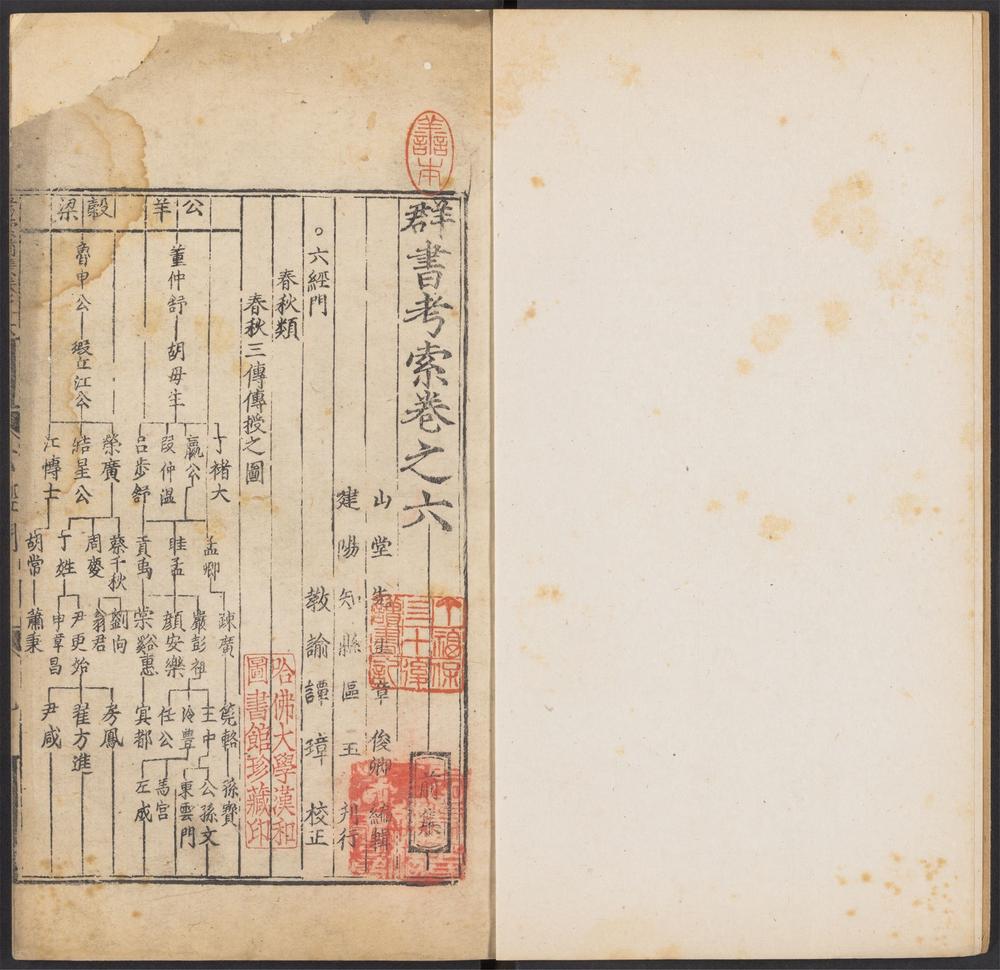 善本
群書考索卷之六
前集
山堂先生章俊卿編輯
建陽知縣區玉刋行
教諭譚璋校正
。六經門
春秋類
春秋三傳傳授之圖
哈佛大學漢和
圖書館珍藏印
公羊
董仲舒
胡毋生
丁褚大
嬴公
段仲溫
呂步舒
孟卿
眭孟
貢禹
疎廣
嚴彭祖
顏安樂
棠谿惠
筦輅
王中
泠豐
任公
㝠都
孫寶
公孫文
東雲門
馬宮
左咸
榖梁
魯申公
瑕丘江公
榮廣
皓星公
江博士
蔡千秋
周慶
丁姓
胡常
劉向
翁君
尹更始
申章昌
蕭秉
房鳳
翟方進
尹咸